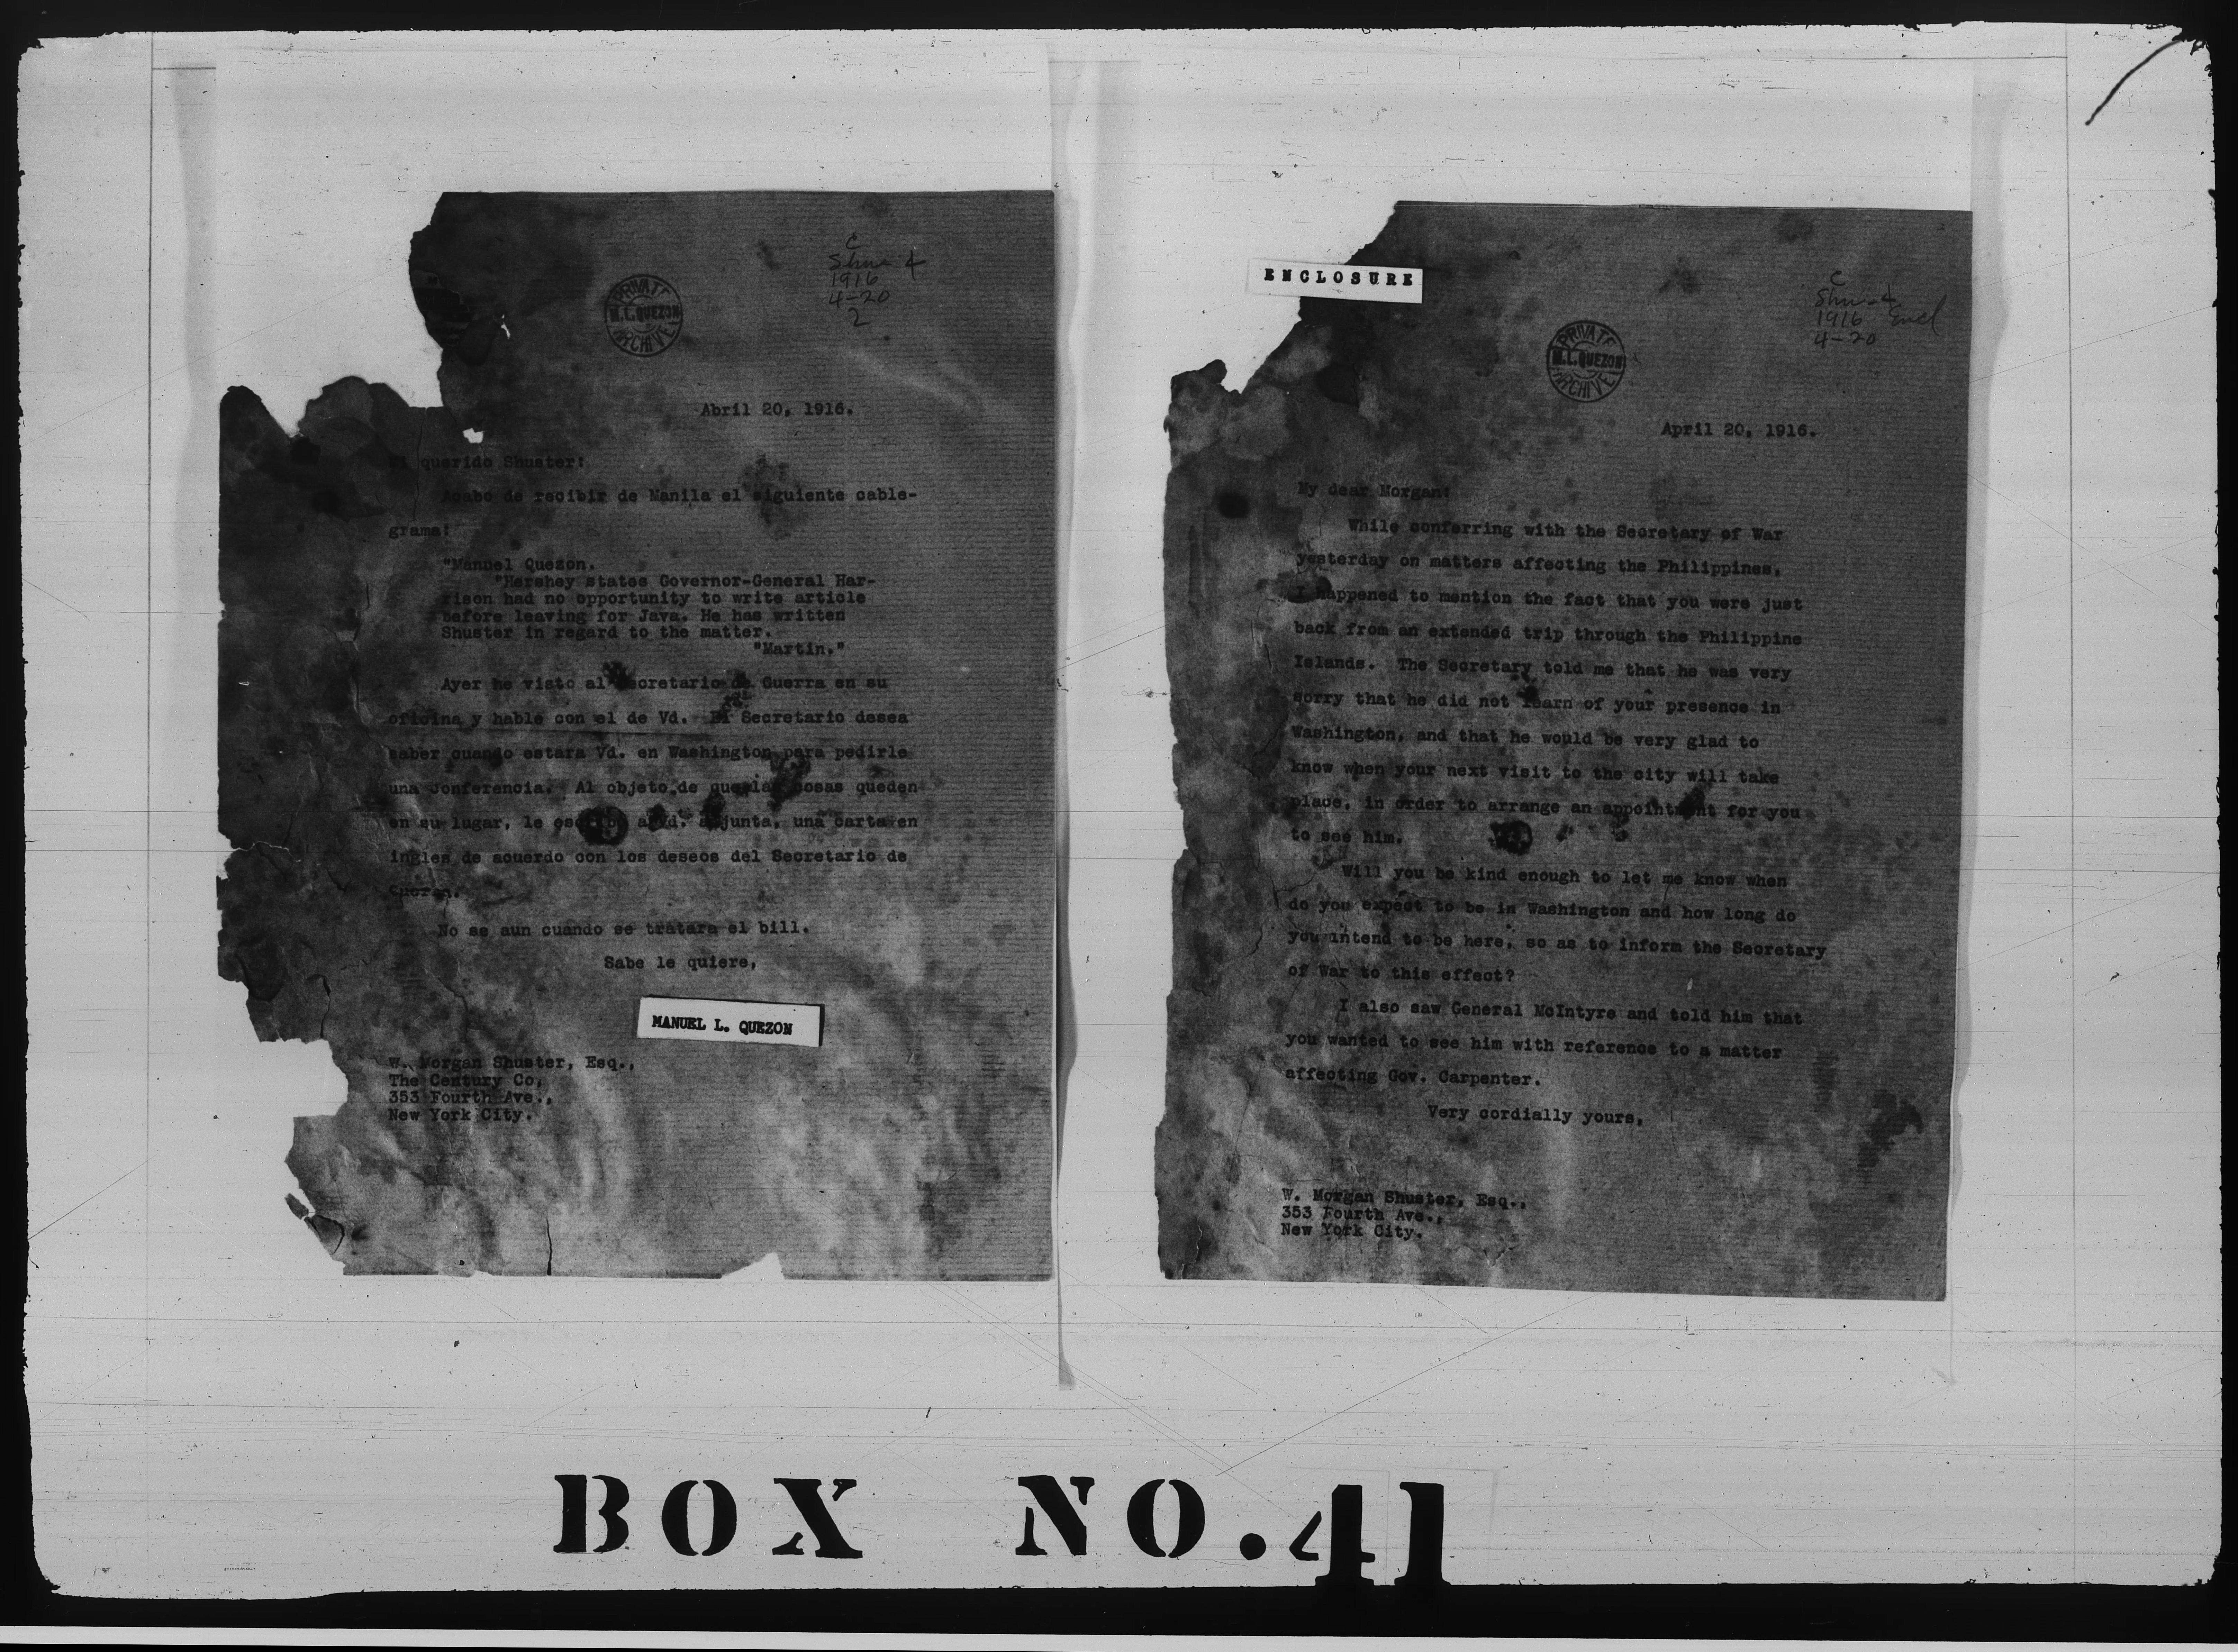 C
1916
4-20
2
PRIVATE
M.L.QUEZON
ARCHIVE
Abril 20, 1916.
Mi querido Shuster:
Acabo de recibir de Manila el siguiente cable-
grama:
"Manuel Quezon.
"Hershey states Governor-General Har-
rison had no opportunity to write article
before leaving for Java. He has written
Shuster in regard to the matter.
"Martin."
Ayer he visto al Secretario de Guerra en su
oficina y hable con el de Vd. El Secretario desea
saber cuando estara Vd. en Washington para pedirle
una conferencia. Al objeto de que las cosas queden
en su lugar, le escribo a Vd. adjunta, una carta en
ingles de acuerdo con los deseos del Secretario de
Guerra.
No se aun cuando se tratara el bill.
Sabe le quiere,
MANUEL L. QUEZON
W. Morgan Shuster, Esq.,
The Century Co,
353 Fourth Ave.,
New York City.
ENCLOSURE
C
1916 Encl
4-20
PRIVATE
M.L.QUEZON
ARCHIVE
April 20, 1916.
My dear Morgan:
While conferring with the Secretary of War
yesterday on matters affecting the Philippines,
I happened to mention the fact that you were just
back from an extended trip through the Philippine
Islands. The Secretary told me that he was very
sorry that he did not learn of your presence in
Washington, and that he would be very glad to
know when your next visit to the city will take
place, in order to arrange an appointment for you
to see him.
Will you be kind enough to let me know when
do you expect to be in Washington and how long do
you intend to be here, so as to inform the Secretary
of War to this effect?
I also saw General McIntyre and told him that
you wanted to see him with reference to a matter
affecting Gov. Carpenter.
Very cordially yours,
W. Morgan Shuster, Esq.,
353 Fourth Ave.,
New York City.
BOX NO.41